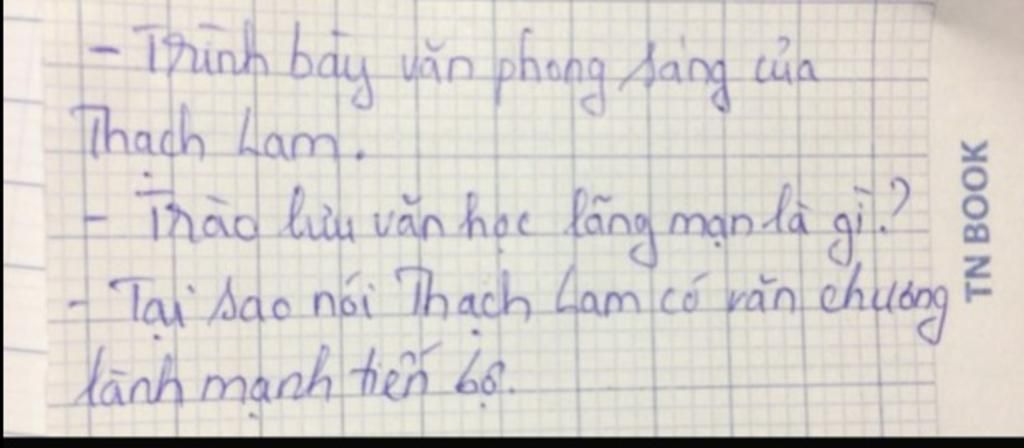 - Trình bày văn phong sáng của
Thạch Lam.
- Trào lưu văn học lãng mạn là gì?
- Tại sao nói Thạch Lam có văn chương
lành mạnh tiến bộ.
TN BOOK